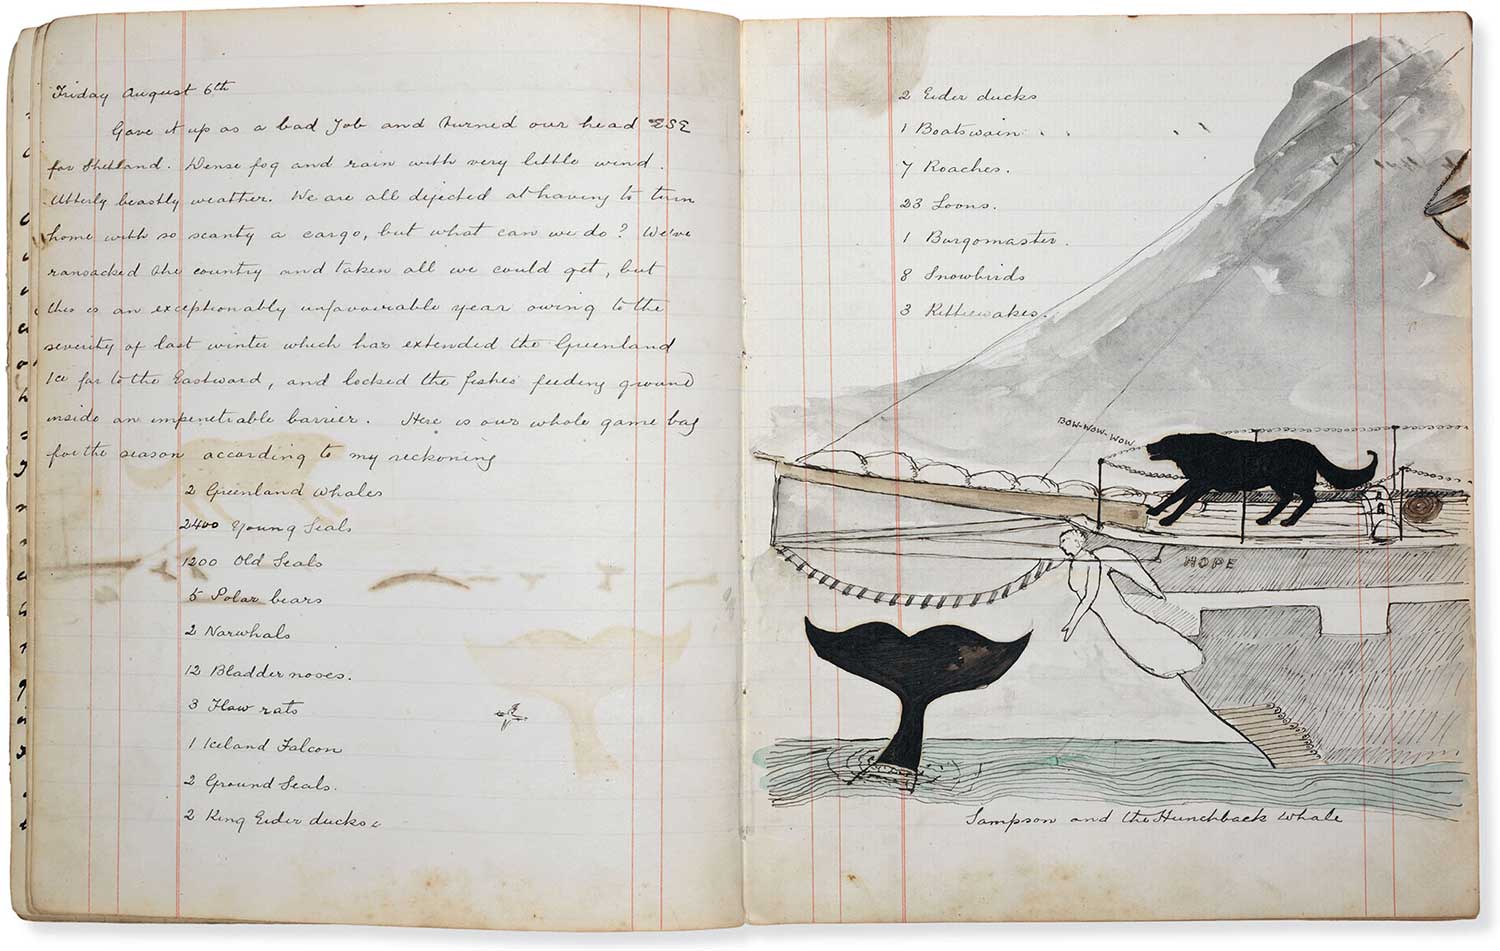 Friday August 6th
Gave it up as a bad Job and turned our head ESE
for Shetland. Dense fog and rain with very little wind.
Utterly beastly weather. We are all dejected at having to turn
home with so scanty a cargo, but what can we do? We've
ransacked the country and taken all we could get, but
this is an exceptionally unfavourable year owing to the
severity of last winter which has extended the Greenland
Ice far to the Eastward, and locked the fishes' feeding ground
inside an impenetrable barrier. Here is our whole game bag
for the season according to my reckoning
2 Greenland Whales
2400 Young Seals
1200 Old Seals
5 Polar bears
2 Narwhals
12 Bladdernoses.
3 Flaw rats
1 Iceland Falcon
2 Ground Seals.
2 King Eider ducks
2 Eider ducks
1 Boatswain
7 Roaches.
23 Loons.
1 Burgomaster.
8 Snowbirds
3 Kittiewakes.
BOW-WOW-WOW
HOPE
Sampson and the Hunchback Whale